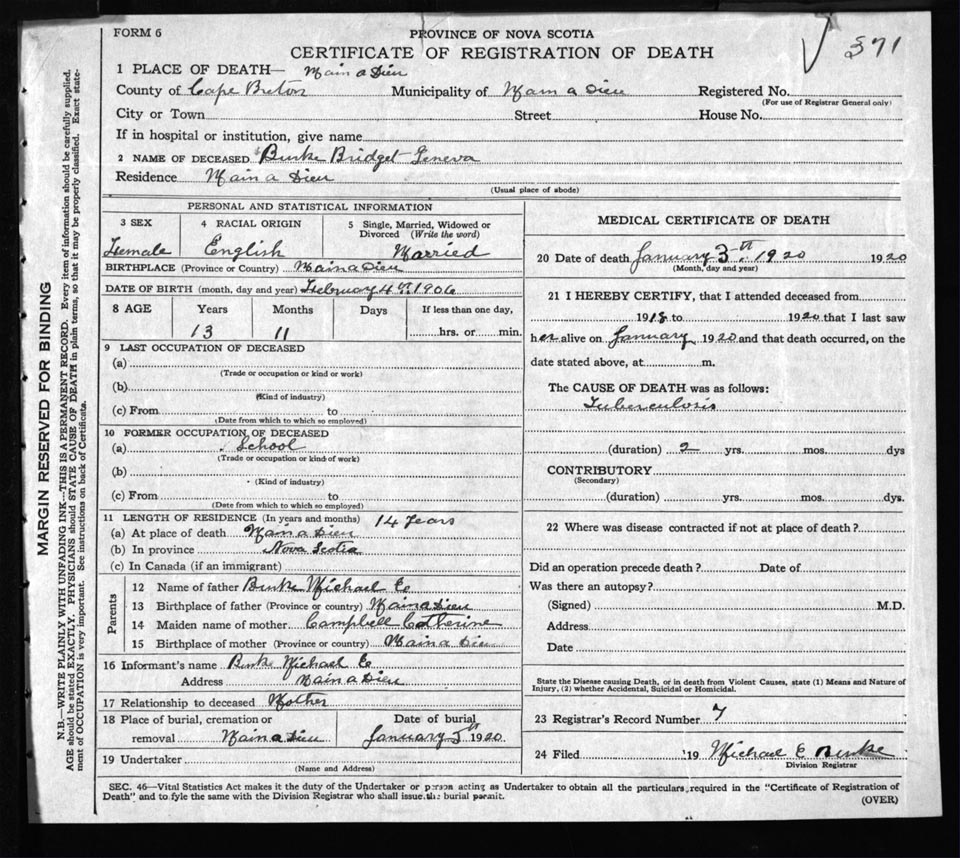 FORM 6
PROVINCE OF NOVA SCOTIA
371
CERTIFICATE OF REGISTRATION OF DEATH
1 PLACE OF DEATH— Main a Dieu
County of Cape Breton Municipality of Main a Dieu Registered No.
(For use of Registrar General only)
City or Town Street House No.
If in hospital or institution, give name
2 NAME OF DECEASED Burke Bridget Geneva
Residence Main a Dieu
(Usual place of abode)
PERSONAL AND STATISTICAL INFORMATION
3 SEX 4 RACIAL ORIGIN 5 Single, Married, Widowed or
Divorced (Write the word)
Female English Married
BIRTHPLACE (Province or Country) Main a Dieu
DATE OF BIRTH (month, day and year) February 4th 1906
8 AGE Years Months Days If less than one day,
13 11 hrs. or min.
9 LAST OCCUPATION OF DECEASED
(a)
(Trade or occupation or kind or work)
(b)
(Kind of industry)
(c) From to
(Date from which to which so employed)
10 FORMER OCCUPATION OF DECEASED
(a) School
(Trade or occupation or kind of work)
(b)
(Kind of industry)
(c) From to
(Date from which to which so employed)
11 LENGTH OF RESIDENCE (In years and months) 14 Years
(a) At place of death Main a Dieu
(b) In province Nova Scotia
(c) In Canada (if an immigrant)
Parents
12 Name of father Burke Michael E
13 Birthplace of father (Province or country) Main a Dieu
14 Maiden name of mother Campbell Catherine
15 Birthplace of mother (Province or country) Main a Dieu
16 Informant's name Burke Michael E
Address Main a Dieu
17 Relationship to deceased Mother
18 Place of burial, cremation or Date of burial
removal Main a Dieu January 5th 1920
19 Undertaker
(Name and Address)
MEDICAL CERTIFICATE OF DEATH
20 Date of death January 3th. 1920 1920
(Month, day and year)
21 I HEREBY CERTIFY, that I attended deceased from
1918 to 1920 that I last saw
her alive on January 1920 and that death occurred, on the
date stated above, at m.
The CAUSE OF DEATH was as follows:
Tuberculosis
(duration) 2 yrs. mos. dys
CONTRIBUTORY
(Secondary)
(duration) yrs. mos. dys.
22 Where was disease contracted if not at place of death?
Did an operation precede death? Date of
Was there an autopsy?
(Signed) M.D.
Address
Date
State the Disease causing Death, or in death from Violent Causes, state (1) Means and Nature of
Injury, (2) whether Accidental, Suicidal or Homicidal.
23 Registrar's Record Number 7
24 Filed 19 Michael E Burke
Division Registrar
SEC. 46—Vital Statistics Act makes it the duty of the Undertaker or person acting as Undertaker to obtain all the particulars required in the "Certificate of Registration of
Death" and to fyle the same with the Division Registrar who shall issue the burial permit.
(OVER)
MARGIN RESERVED FOR BINDING
N.B.—WRITE PLAINLY WITH UNFADING INK—THIS IS A PERMANENT RECORD. Every item of information should be carefully supplied.
AGE should be stated EXACTLY. PHYSICIANS should STATE CAUSE OF DEATH in plain terms, so that it may be properly classified. Exact state-
ment of OCCUPATION is very important. See instructions on back of Certificate.